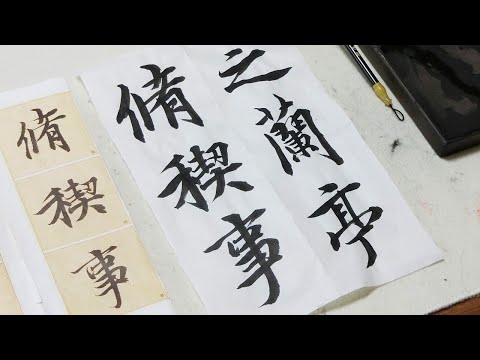 之蘭亭
脩稧事
脩稧事